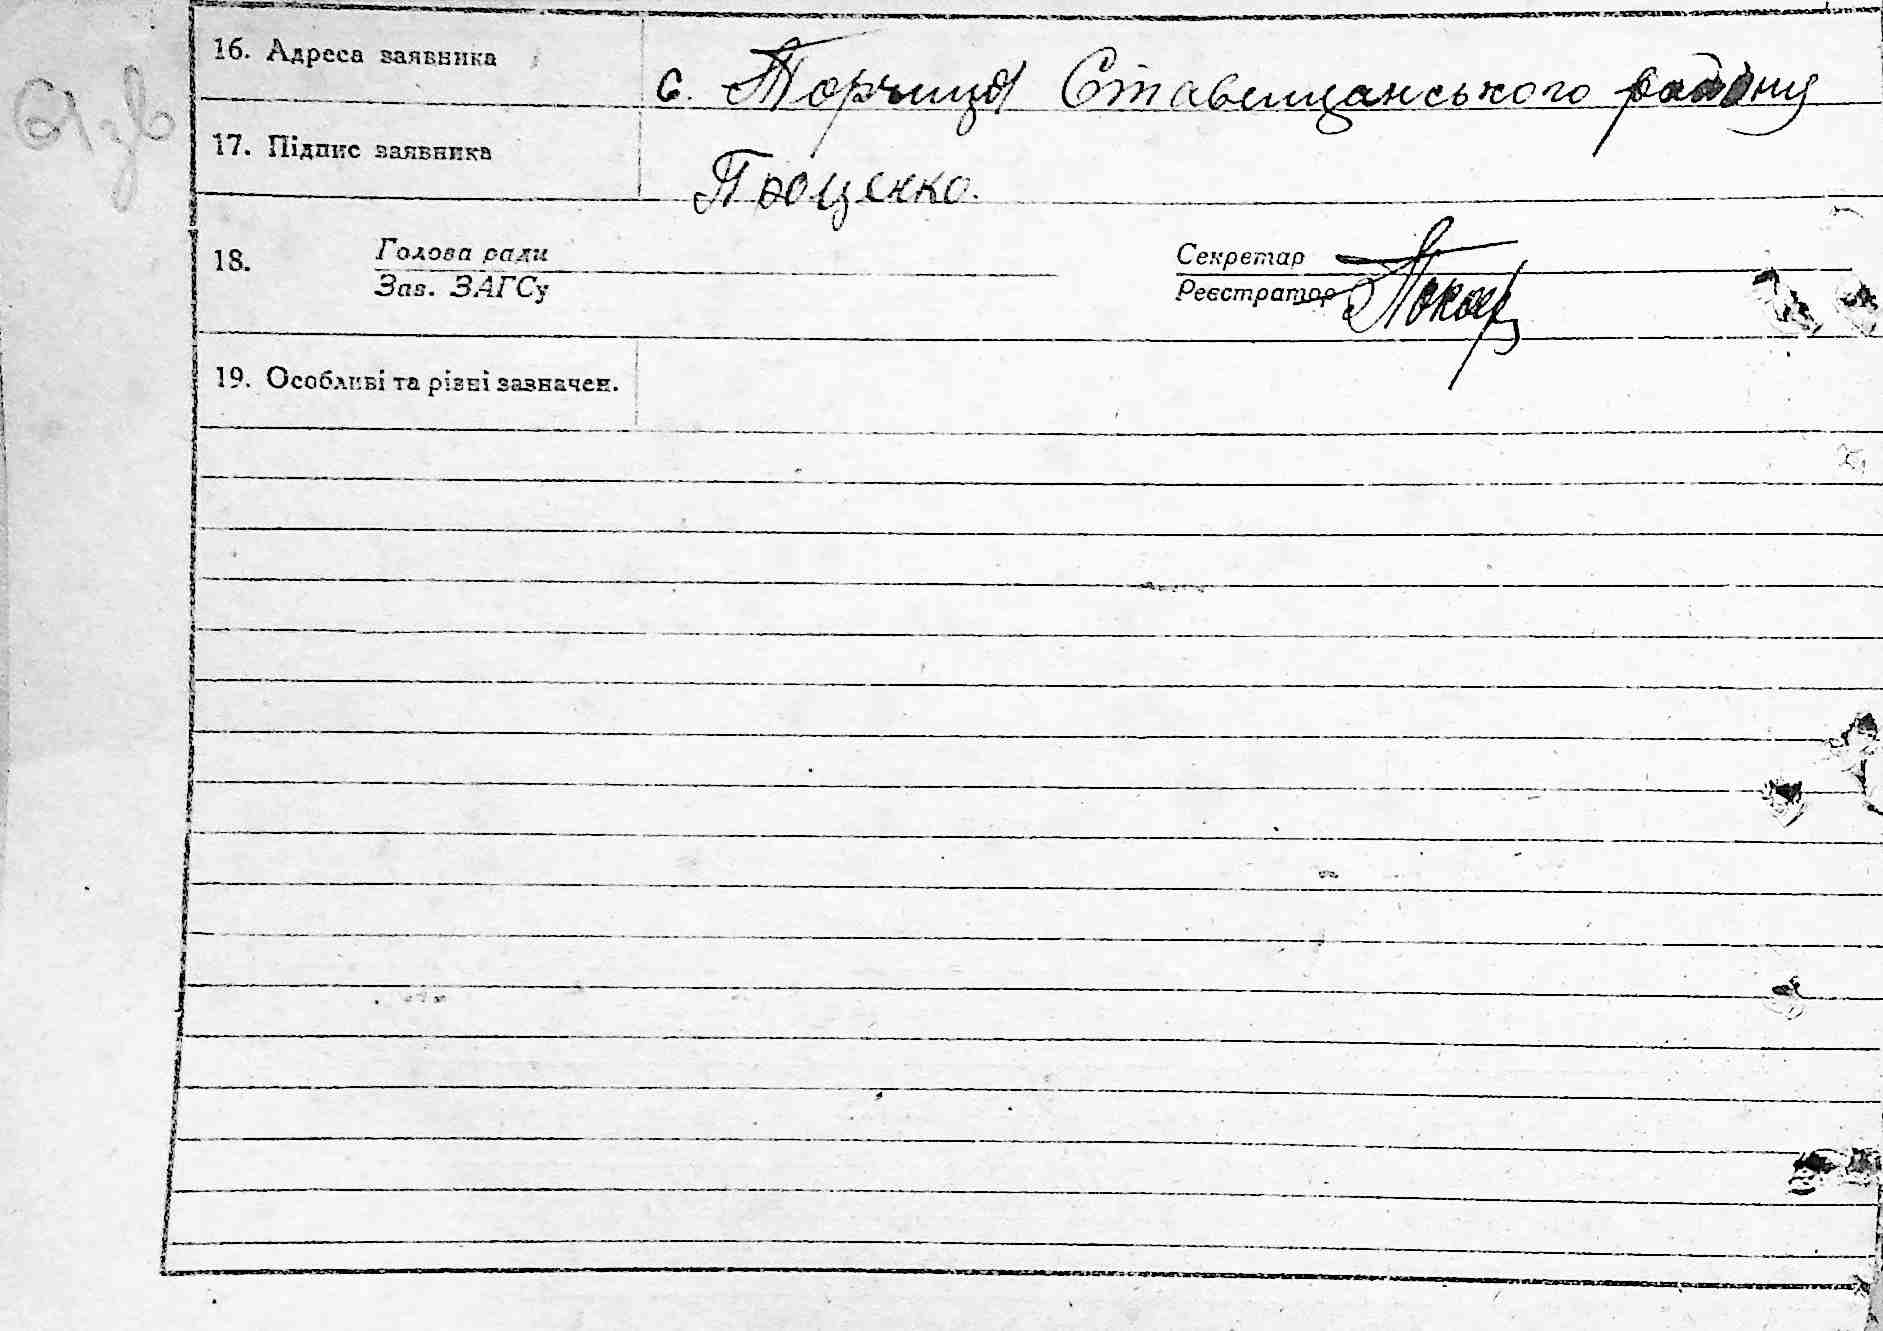 16. Адреса заявника
с. Торчиця Ставищанського району
17. Підпис заявника
Проценко.
18. Голова ради Секретар
Зав. ЗАГСу Реєстратор
19. Особливі та різні зазначен.